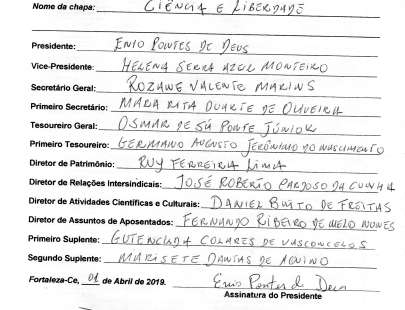 Nome da chapa: CIÊNCIA E LIBERDADE
Presidente: ENIO PONTES DE DEUS
Vice-Presidente: HELENA SERRA AZUL MONTEIRO
Secretário Geral: ROZANE VALENTE MARINS
Primeiro Secretário: MARA RITA DUARTE DE OLIVEIRA
Tesoureiro Geral: OSMAR DE SÁ PONTE JÚNIOR
Primeiro Tesoureiro: GERMANO AUGUSTO JERÔNIMO DO NASCIMENTO
Diretor de Patrimônio: RUY FERREIRA LIMA
Diretor de Relações Intersindicais: JOSÉ ROBERTO CARDOSO DA CUNHA
Diretor de Atividades Científicas e Culturais: DANIEL BRITO DE FREITAS
Diretor de Assuntos de Aposentados: FERNANDO RIBEIRO DE MELO NUNES
Primeiro Suplente: GUTENCIADA COLARES DE VASCONCELOS
Segundo Suplente: MARISETE DANTAS DE AQUINO
Fortaleza-Ce, 01 de Abril de 2019. Enio Pontes de Deus
Assinatura do Presidente